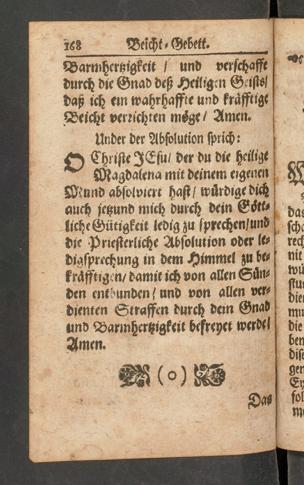 168 Beicht-Gebett.
Barmhertzigkeit / und verschaffe
durch die Gnad deß Heiligen Geists/
daß ich ein wahrhaffte und kräfftige
Beicht verrichten möge / Amen.
Under der Absolution sprich:
O Christe JEsu/ der du die heilige
Magdalena mit deinem eigenen
Mund absolviert hast/ würdige dich
auch jetzund mich durch dein Gött-
liche Gütigkeit ledig zu sprechen/und
die Priesterliche Absolution oder le-
digsprechung in dem Himmel zu be-
kräfftigen/damit ich von allen Sün-
den entbunden/ und von allen ver-
dienten Straffen durch dein Gnad
und Barmhertzigkeit befreyet werde/
Amen.
(o)
Das